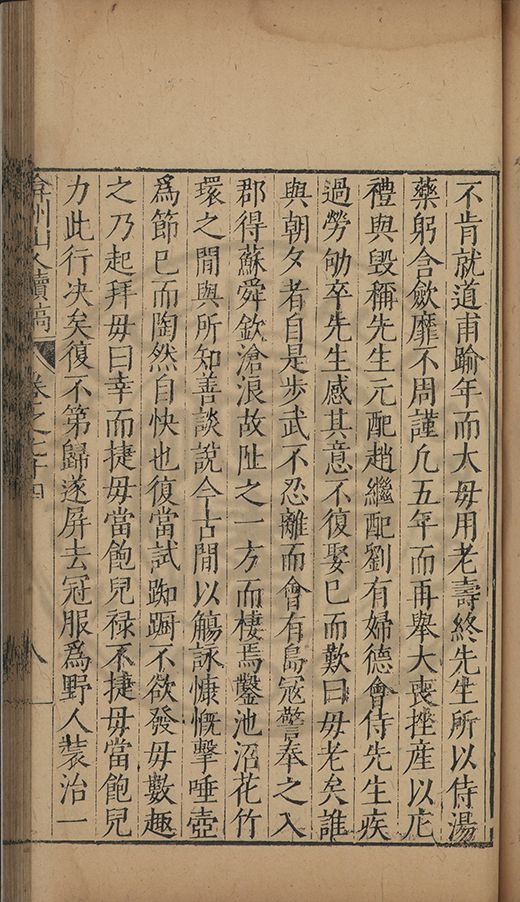 不肯就道甫踰年而大毋用老壽終先生所以侍湯
藥躬含斂靡不周謹凢五年而再舉大喪挫産以庀
禮與毀稱先生元配趙繼配劉有婦德會侍先生疾
過勞劬卒先生感其意不復娶巳而歎曰毋老矣誰
與朝夕者自是步武不忍離而會有島冦警奉之入
郡得蘇舜欽滄浪故阯之一方而棲焉鑿池沼花竹
環之間與所知善談說今古間以觴詠慷慨擊唾壺
爲節巳而陶然自快也復當試踟蹰不欲發毋數趣
之乃起拜毋曰幸而捷毋當飽兒禄不捷毋當飽兒
力此行决矣復不第歸遂屏去冠服爲野人裝治一
弇州山人續稿
卷之七十四
八